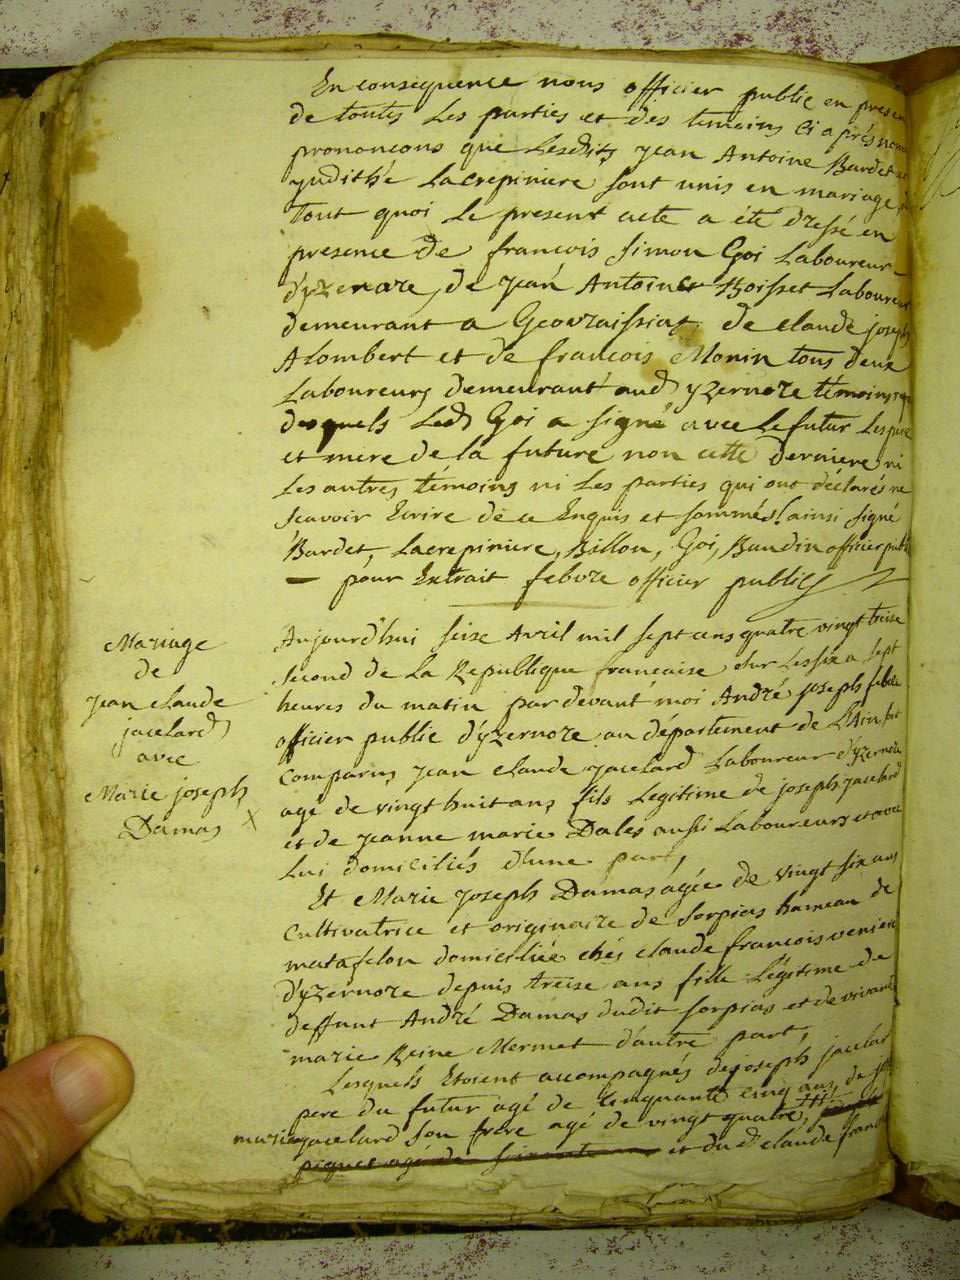 En consequence nous officier public en presen
de toutes les parties et des temoins ci après nom
prononcons que lesdits jean Antoine Bardet et
judithe Lacrepiniere sont unis en mariage
tout quoi le present acte a été dressé en
presence de francois simon Goi Laboureur
d'yzernore, de jean Antoine Boisset Laboureur
demeurant a Geovraissiat, de claude joseph
Alombert et de francois Monin tous deux
Laboureurs demeurant aud yzernore témoins
desquels led Goi a signé avec le futur Les pere
et mere de la future non cette derniere ni
Les autres témoins ni Les parties qui ont déclarés ne
scavoir Ecrire de ce Enquis et sommés! ainsi signé
Bardet, Lacrepiniere, Billon, Goi, Baudin officier public
— pour Extrait febvre officier public
Mariage
de
jean claude
jacelard
avec
Marie joseph
Damas X
Aujourd'hui seise Avril mil sept cens quatre vingt treise
second de La Republique francaise sur Les six a sept
heures du matin pardevant moi André joseph febvre
officier public d'yzernore au département de L'Ain
comparus jean claude jacelard Laboureur d'yzernore
agé de vingt huit ans, fils Legitime de joseph jacelard
et de jeanne marie Dales aussi Laboureurs et avec
Lui domiciliés d'une part,
Et Marie joseph Damas agée de vingt six ans
Cultivatrice et originaire de Sorpias hameau de
matafelon domiciliée chés claude francois
d'yzernore depuis treise ans fille Légitime de
deffunt André Damas dudit sorpias et de vivante
marie Reine Mermet d'autre part,
Lesquels Etoient accompagnés de joseph jacelard
pere du futur agé de cinquante cinq ans, de
marie jacelard son frere agé de vingt quatre,
piquet agé de soixante et du d claude francois